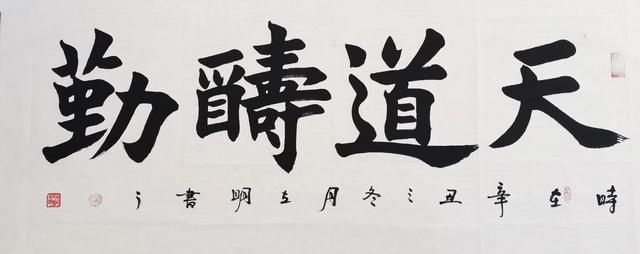 天道醻勤
時在辛丑之冬月明書